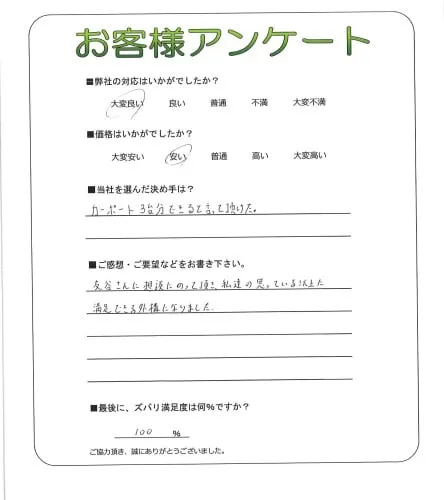 お客様アンケート
■弊社の対応はいかがでしたか？
大変良い 良い 普通 不満 大変不満
■価格はいかがでしたか？
大変安い 安い 普通 高い 大変高い
■当社を選んだ決め手は？
カーポート 3台分できると言って頂けた。
■ご感想・ご要望などをお書き下さい。
友谷さんに相談にのって頂き 私達の思っている以上に
満足できる外構になりました。
■最後に、ズバリ満足度は何％ですか？
100 %
ご協力頂き、誠にありがとうございました。